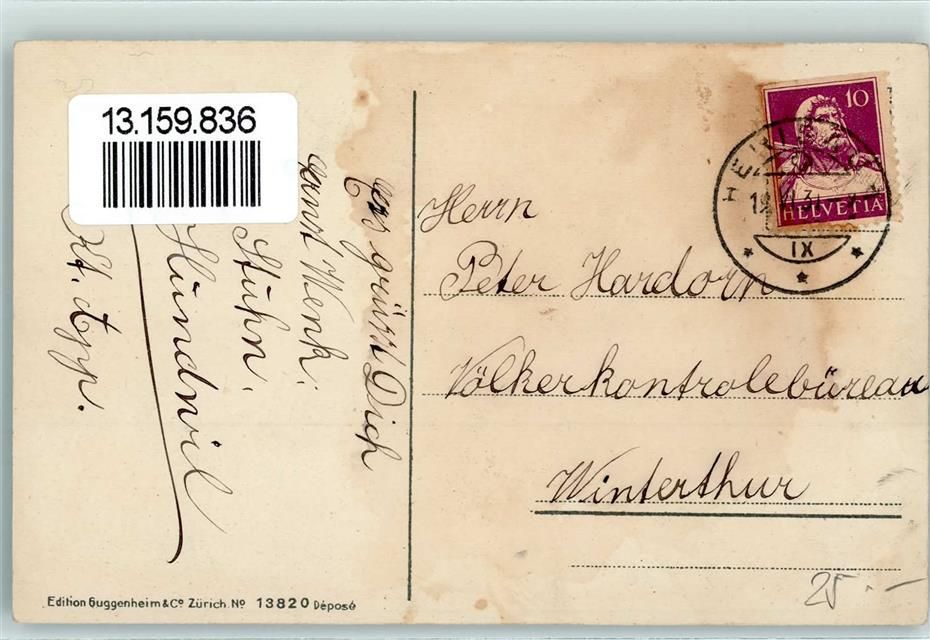 13.159.836
Es grüsst Dich
Ernst Wenk.
Stuhn.
Hundwil
Kt. App.
Herrn
Peter Hardorn
Völkerkontrolebüreau
Winterthur
10
HELVETIA
IX
25.—
Edition Guggenheim & Co Zürich. No 13820 Déposé